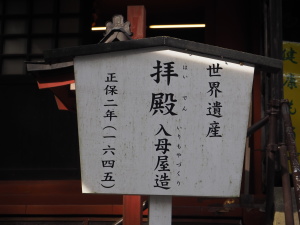 世界遺産
拝殿 入母屋造
はいでん いりもやづくり
正保二年(一六四五)